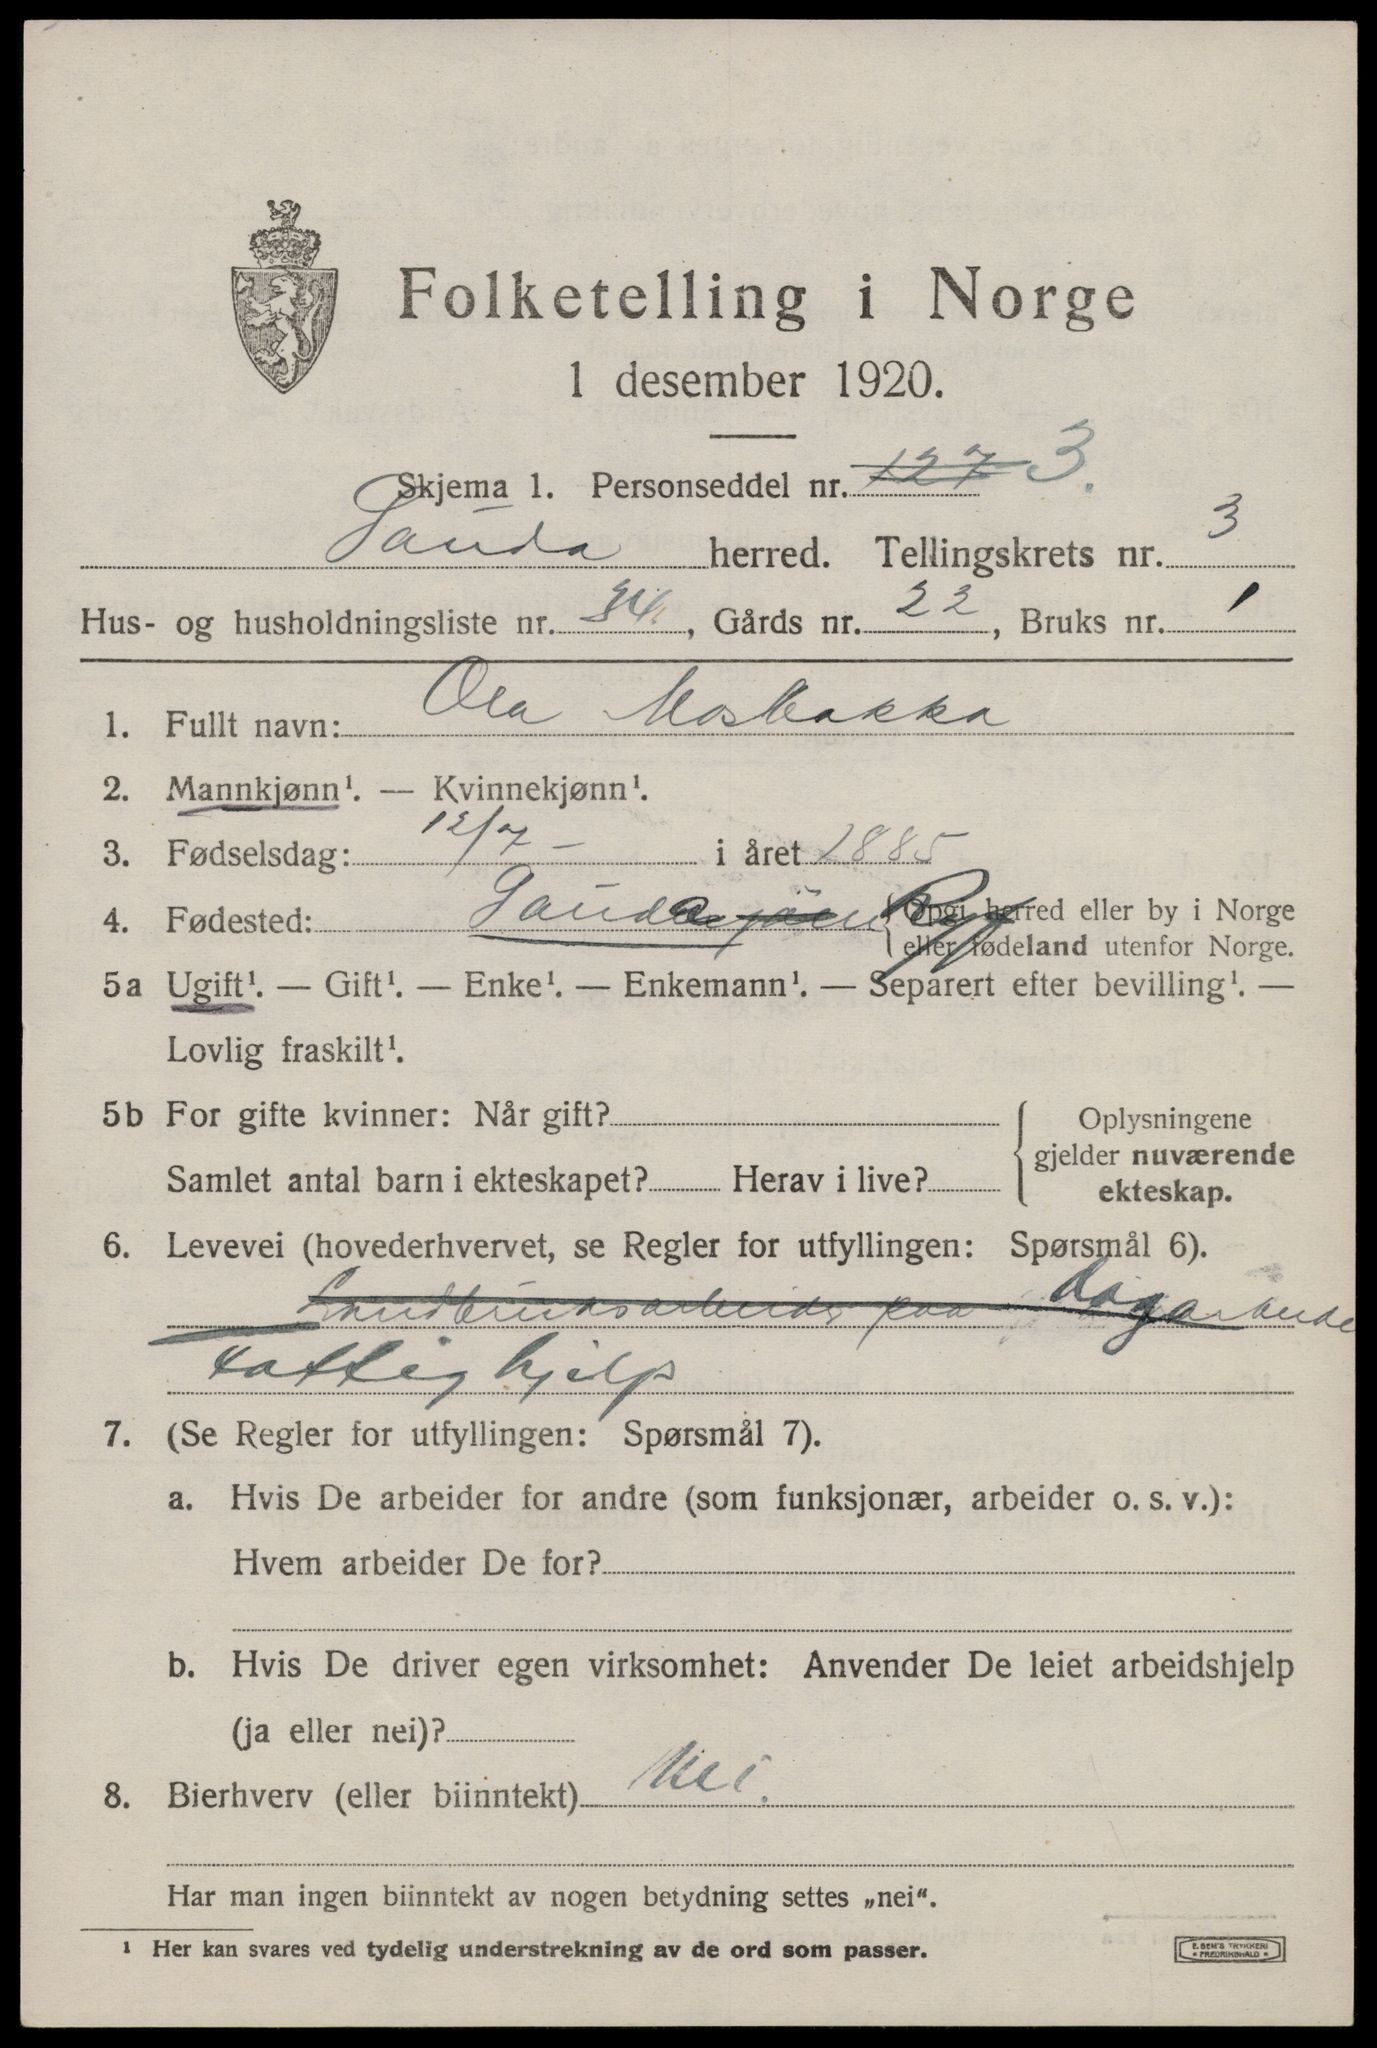 Folketelling i Norge
1 desember 1920.
Skjema 1. Personseddel nr. 127 3.
Sauda herred. Tellingskrets nr. 3
Hus- og husholdningsliste nr. 34, Gårds nr. 22, Bruks nr. 1
1. Fullt navn: Ola Mosbakka
2. Mannkjønn¹. — Kvinnekjønn¹.
3. Fødselsdag: 12/7 - i året 1885
4. Fødested: Sauda Ryf {Opgi herred eller by i Norge
eller fødeland utenfor Norge.
5a Ugift¹. — Gift¹. — Enke¹. — Enkemann¹. — Separert efter bevilling¹. —
Lovlig fraskilt¹.
5b For gifte kvinner: Når gift? { Oplysningene
gjelder nuværende
Samlet antal barn i ekteskapet? Herav i live? ekteskap.
6. Levevei (hovederhvervet, se Regler for utfyllingen: Spørsmål 6).
Landbruksarbeider paa
Fattighjelp
7. (Se Regler for utfyllingen: Spørsmål 7).
a. Hvis De arbeider for andre (som funksjonær, arbeider o. s. v.):
Hvem arbeider De for?
b. Hvis De driver egen virksomhet: Anvender De leiet arbeidshjelp
(ja eller nei)?
8. Bierhverv (eller biinntekt) Nei.
Har man ingen biinntekt av nogen betydning settes „nei“.
¹ Her kan svares ved tydelig understrekning av de ord som passer.
E. SEM'S TRYKKERI
* FREDRIKSHALD *